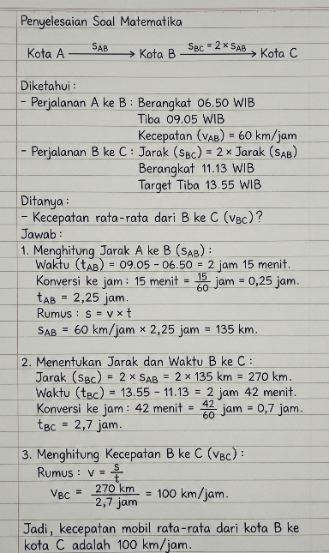 Penyelesaian Soal Matematika
Kota A —S_AB→ Kota B —S_BC = 2 × S_AB→ Kota C
Diketahui :
- Perjalanan A ke B : Berangkat 06.50 WIB
Tiba 09.05 WIB
Kecepatan (V_AB) = 60 km/jam
- Perjalanan B ke C : Jarak (S_BC) = 2 × Jarak (S_AB)
Berangkat 11.13 WIB
Target Tiba 13.55 WIB
Ditanya :
- Kecepatan rata-rata dari B ke C (V_BC) ?
Jawab :
1. Menghitung Jarak A ke B (S_AB) :
Waktu (t_AB) = 09.05 - 06.50 = 2 jam 15 menit.
Konversi ke jam : 15 menit = 15/60 jam = 0,25 jam.
t_AB = 2,25 jam.
Rumus : s = v × t
S_AB = 60 km/jam × 2,25 jam = 135 km.
2. Menentukan Jarak dan Waktu B ke C :
Jarak (S_BC) = 2 × S_AB = 2 × 135 km = 270 km.
Waktu (t_BC) = 13.55 - 11.13 = 2 jam 42 menit.
Konversi ke jam : 42 menit = 42/60 jam = 0,7 jam.
t_BC = 2,7 jam.
3. Menghitung Kecepatan B ke C (V_BC) :
Rumus : v = s/t
V_BC = 270 km/2,7 jam = 100 km/jam.
Jadi, kecepatan mobil rata-rata dari kota B ke
kota C adalah 100 km/jam.